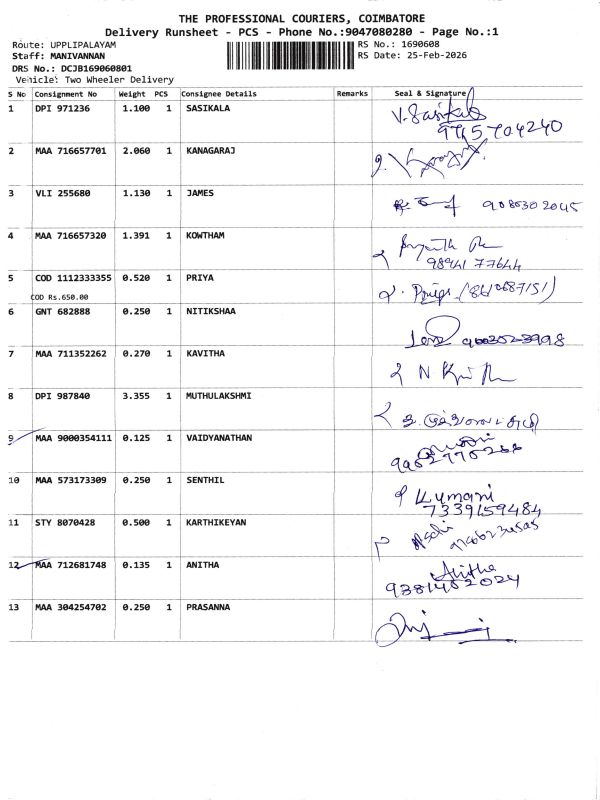 THE PROFESSIONAL COURIERS, COIMBATORE
Delivery Runsheet - PCS - Phone No.:9047080280 - Page No.:1
Route: UPPLIPALAYAM RS No.: 1690608
Staff: MANIVANNAN RS Date: 25-Feb-2026
DRS No.: DCJB169060801
Vehicle: Two Wheeler Delivery
S No Consignment No Weight PCS Consignee Details Remarks Seal & Signature
1 DPI 971236 1.100 1 SASIKALA V. Sasikala
9715704240
2 MAA 716657701 2.060 1 KANAGARAJ
3 VLI 255680 1.130 1 JAMES 9080302045
4 MAA 716657320 1.391 1 KOWTHAM
98941 77644
5 COD 1112333355 0.520 1 PRIYA
COD Rs.650.00 Priya (8610687151)
6 GNT 682888 0.250 1 NITIKSHAA
7 MAA 711352262 0.270 1 KAVITHA
8 DPI 987840 3.355 1 MUTHULAKSHMI
9 MAA 9000354111 0.125 1 VAIDYANATHAN
10 MAA 573173309 0.250 1 SENTHIL Kumani
7339159484
11 STY 8070428 0.500 1 KARTHIKEYAN
12 MAA 712681748 0.135 1 ANITHA Anitha
9381402024
13 MAA 304254702 0.250 1 PRASANNA